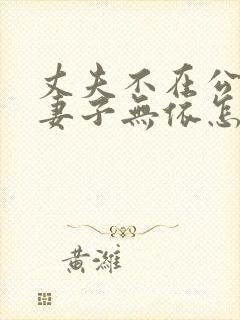 丈夫不在公
妻子無依怎
黄濰